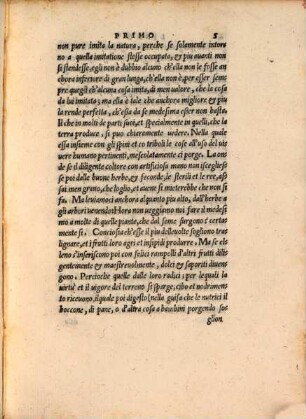 PRIMO 5
non pure imita la natura, perche se solamente intorno
a quella imitatione stesse occupato, & piu auanti non
si stendesse, egli non è dubbio alcuno ch'ella non le fosse anchora
inferiore di gran lunga, ch'ella non è, per esser sempre
quegli ch'alcuna cosa imita, di men ualore, che la cosa
da lui imitata; ma ella è tale che anchora migliore & piu
la rende perfetta, ch'essa da se medesima esser non basta
Il che in molte de parti sue, et specialmente in quelli, che la
terra produce, si puo chiaramente uedere. Nella quale
essa insieme con gli spini et co triboli le cose all'uso del uiuere
humano pertinenti, mescolatamente ci porge. La onde
se il diligente coltore con artificiosa mano non iscegliesse
poi dalle buone herbe, & feconde, le sterili et le ree, assai
men grano, che loglio, et auene si mieterebbe che non si
fa. Ma leuianoci anchora alquanto piu alto, dall'herbe
a gli arbori uenendo: Hor non ueggiamo noi fare il medesimo
a molte di quelle piante, che dal seme surgono? certamente
si. Conciosia ch'esse il piu delle uolte sogliano tralignare,
et i frutti loro agri et insipidi produrre. Ma se elle
s'inseriscono poi con felici rampolli d'altri frutti diligentemente
& maestreuolmente, dolci & saporiti diuengono.
Percioche quelle dalle loro radici; per lequali la
uirtu et il uigore del terreno si sparge, cibo et nodrimento
riceuono, ilquale poi digesto (nella guisa che le nutrici il
boccone, di pane, o d'altra cosa a bambini porgendo sos
glion